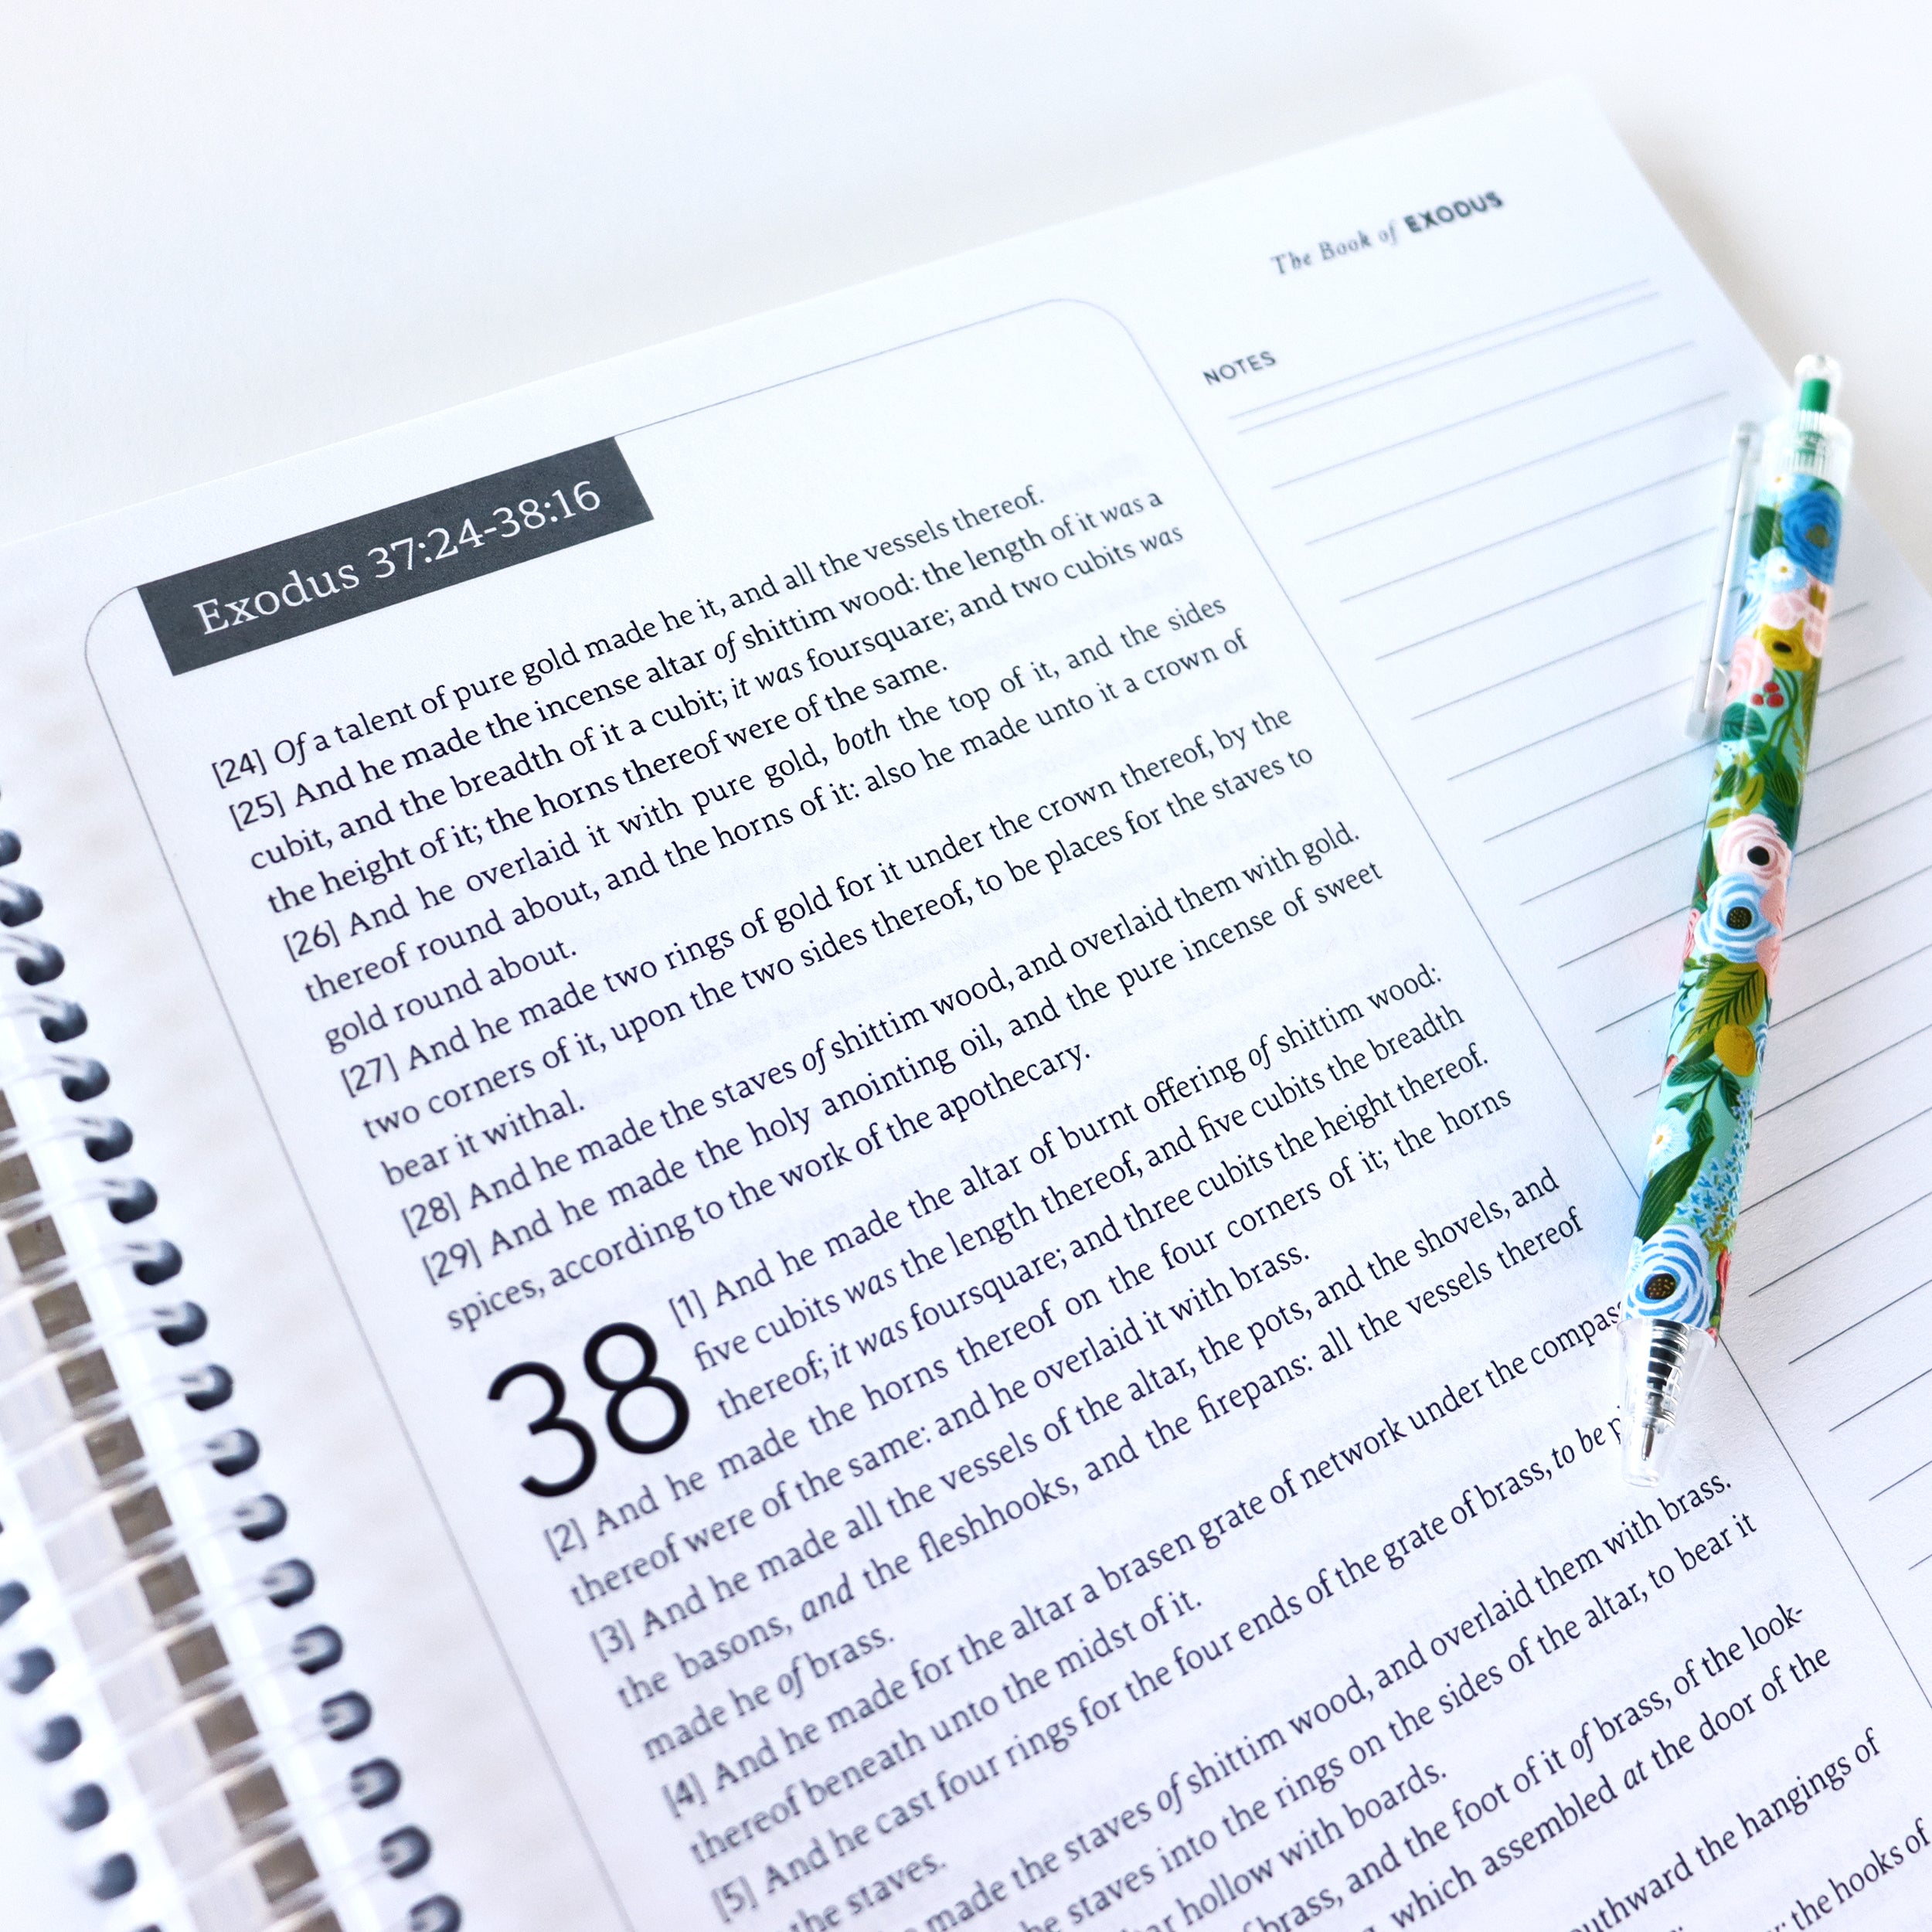 The Book of EXODUS
NOTES
Exodus 37:24-38:16
[24] Of a talent of pure gold made he it, and all the vessels thereof.
[25] And he made the incense altar of shittim wood: the length of it was a
cubit, and the breadth of it a cubit; it was foursquare; and two cubits was
the height of it; the horns thereof were of the same.
[26] And he overlaid it with pure gold, both the top of it, and the sides
thereof round about, and the horns of it: also he made unto it a crown of
gold round about.
[27] And he made two rings of gold for it under the crown thereof, by the
two corners of it, upon the two sides thereof, to be places for the staves to
bear it withal.
[28] And he made the staves of shittim wood, and overlaid them with gold.
[29] And he made the holy anointing oil, and the pure incense of sweet
spices, according to the work of the apothecary.
38
[1] And he made the altar of burnt offering of shittim wood:
five cubits was the length thereof, and five cubits the breadth
thereof; it was foursquare; and three cubits the height thereof.
[2] And he made the horns thereof on the four corners of it; the horns
thereof were of the same: and he overlaid it with brass.
[3] And he made all the vessels of the altar, the pots, and the shovels, and
the basons, and the fleshhooks, and the firepans: all the vessels thereof
made he of brass.
[4] And he made for the altar a brasen grate of network under the compass
thereof beneath unto the midst of it.
[5] And he cast four rings for the four ends of the grate of brass, to be
the staves.
made the staves of shittim wood, and overlaid them with brass.
staves into the rings on the sides of the altar, to bear it
hollow with boards.
brass, and the foot of it of brass, of the look-
which assembled at the door of the
the hangings of
the hooks of